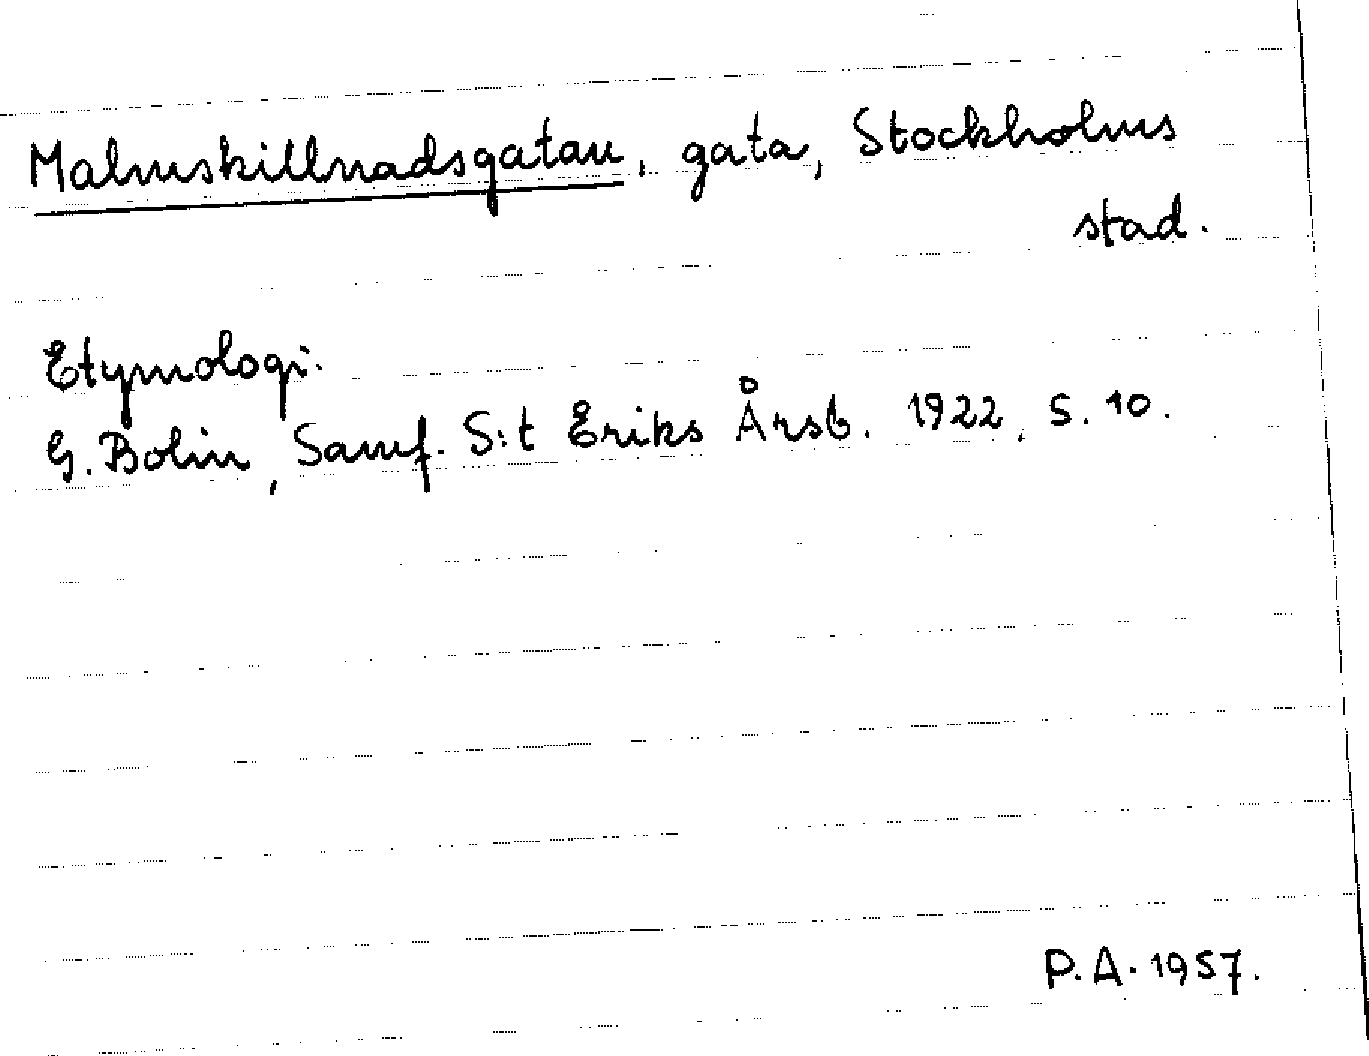 Malmskillnadsgatan, gata, Stockholms
stad.
Etymologi.
G. Bolin, Samf. S:t Eriks Årsb. 1922, s. 10.
P.A. 1957.